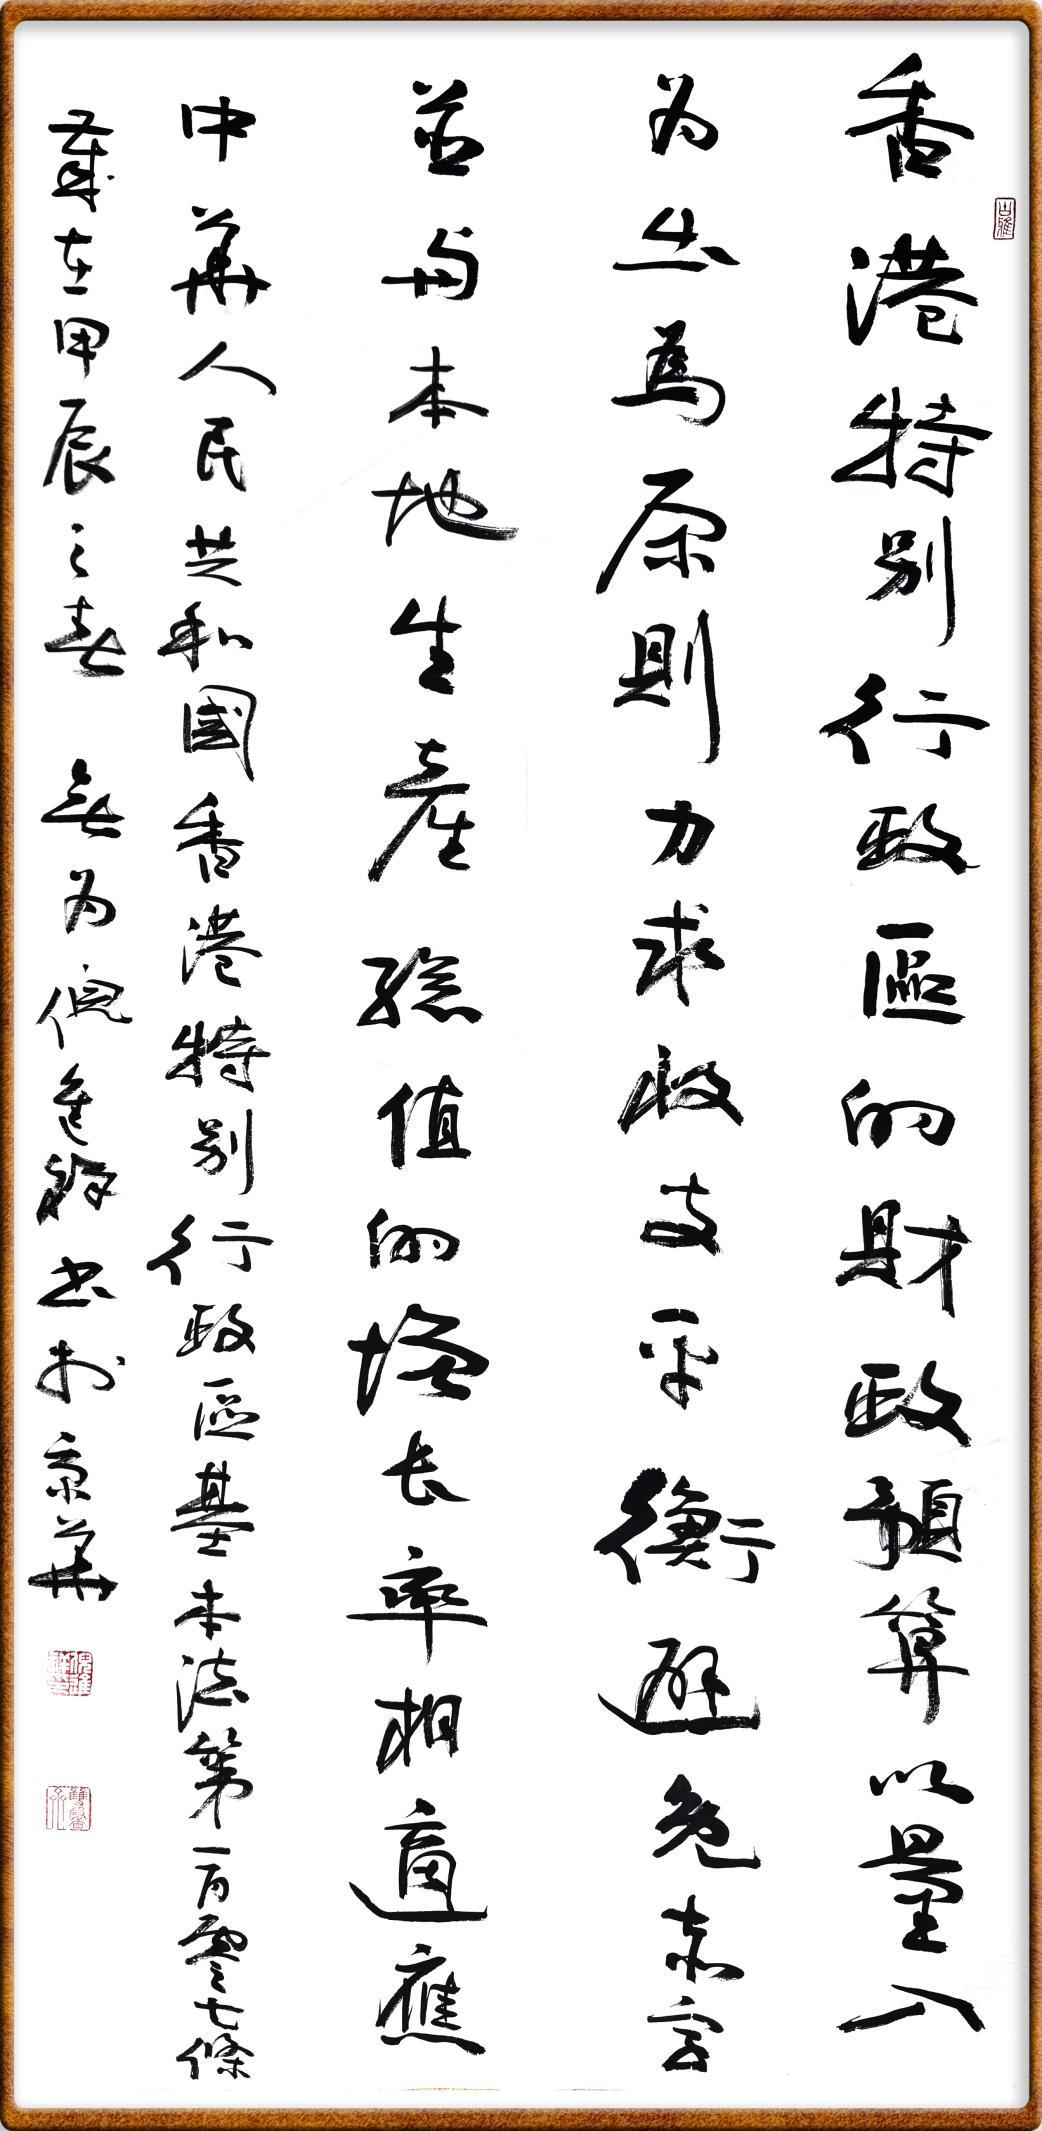 香港特别行政區的財政預算以量入
为出為原則力求收支平衡避免赤字
並与本地生產總值的增长率相適應
中華人民共和國香港特别行政區基本法第一百零七條
歲在甲辰之春 無为倪進祥书於京華